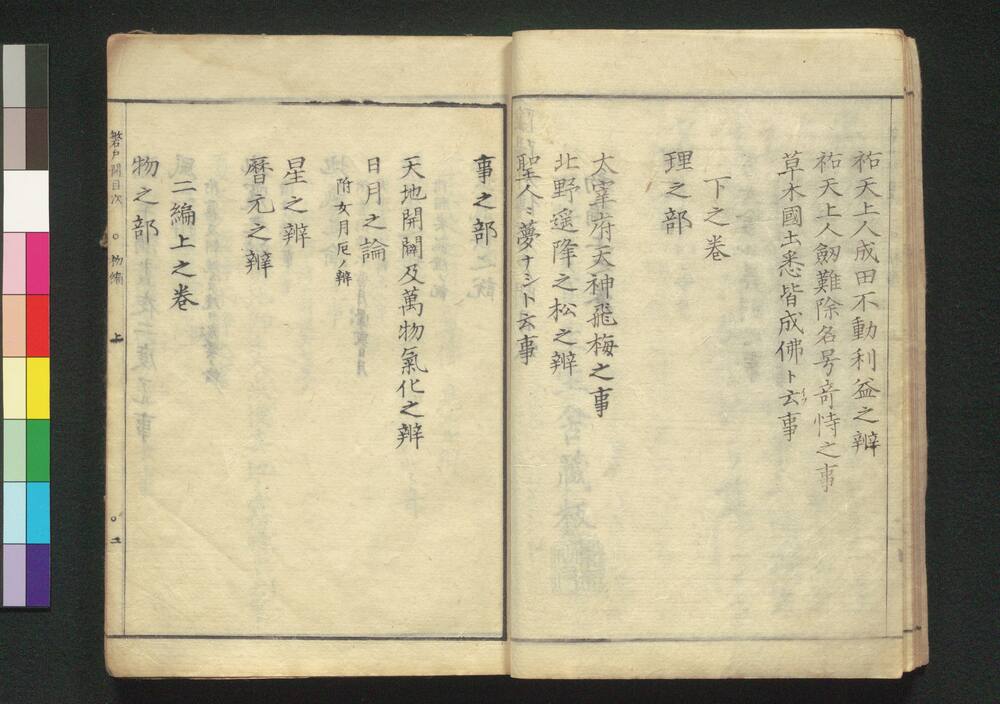 祐天上人成田不動利益之辨
祐天上人劔難除名号奇特之事
草木國土悉皆成佛ト云事
下之巻
理之部
太宰府天神飛梅之事
北野遥降之松之辨
聖人ニ夢ナシト云事
事之部
天地開闢及萬物氣化之辨
日月之論
附女月厄ノ辨
星之辨
暦元之辨
二編上之巻
物之部
磐戸開目次
初編
上